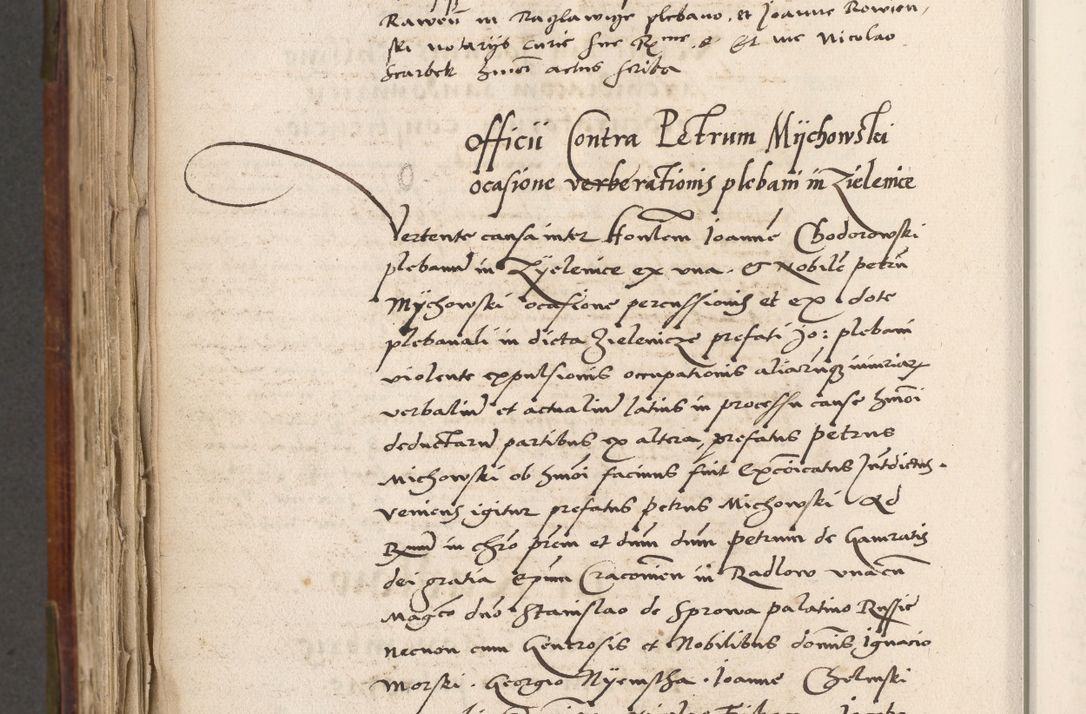 Raweñ in Razlawize plebano, et Joanne Rowien,
ski notarijs Curie sue Rme. Et me Nicolao
Scarbek hmoi actus scriba
Officij Contra Petrum Mijchowski
ocasione verberationis plebani in Zielenice
Vertente causa inter Honlem Joanne Chodorowski
plebanu in Zijelenice ex vna. & Nobile petru
Mijchowski ocasione percussionis et ex dote
plebanali in dicta Zielenicze prefati Jo: plebani
violente expulsionis occupationis aliarumq iniuriar
verbaliu et actualiu latius in processu cause hmoi
deductaru partibus ex altera, prefatus petrus
Michowski ob hmoi facinus fuit Excoicatus Intdictus.
veniens igitur prefatus petrus Michowski Ad
Rmu in chro prem et dnm dnm petrum de Gamratis
dei gratia Epum Cracovien in Radlow vnacu
Magco dno Stanislao de Sprowa palatino Russie
necnon cum Generosis et Nobilibus domis Ignacio
Morski. Georgio Nijemstha. Joanne Chelmski